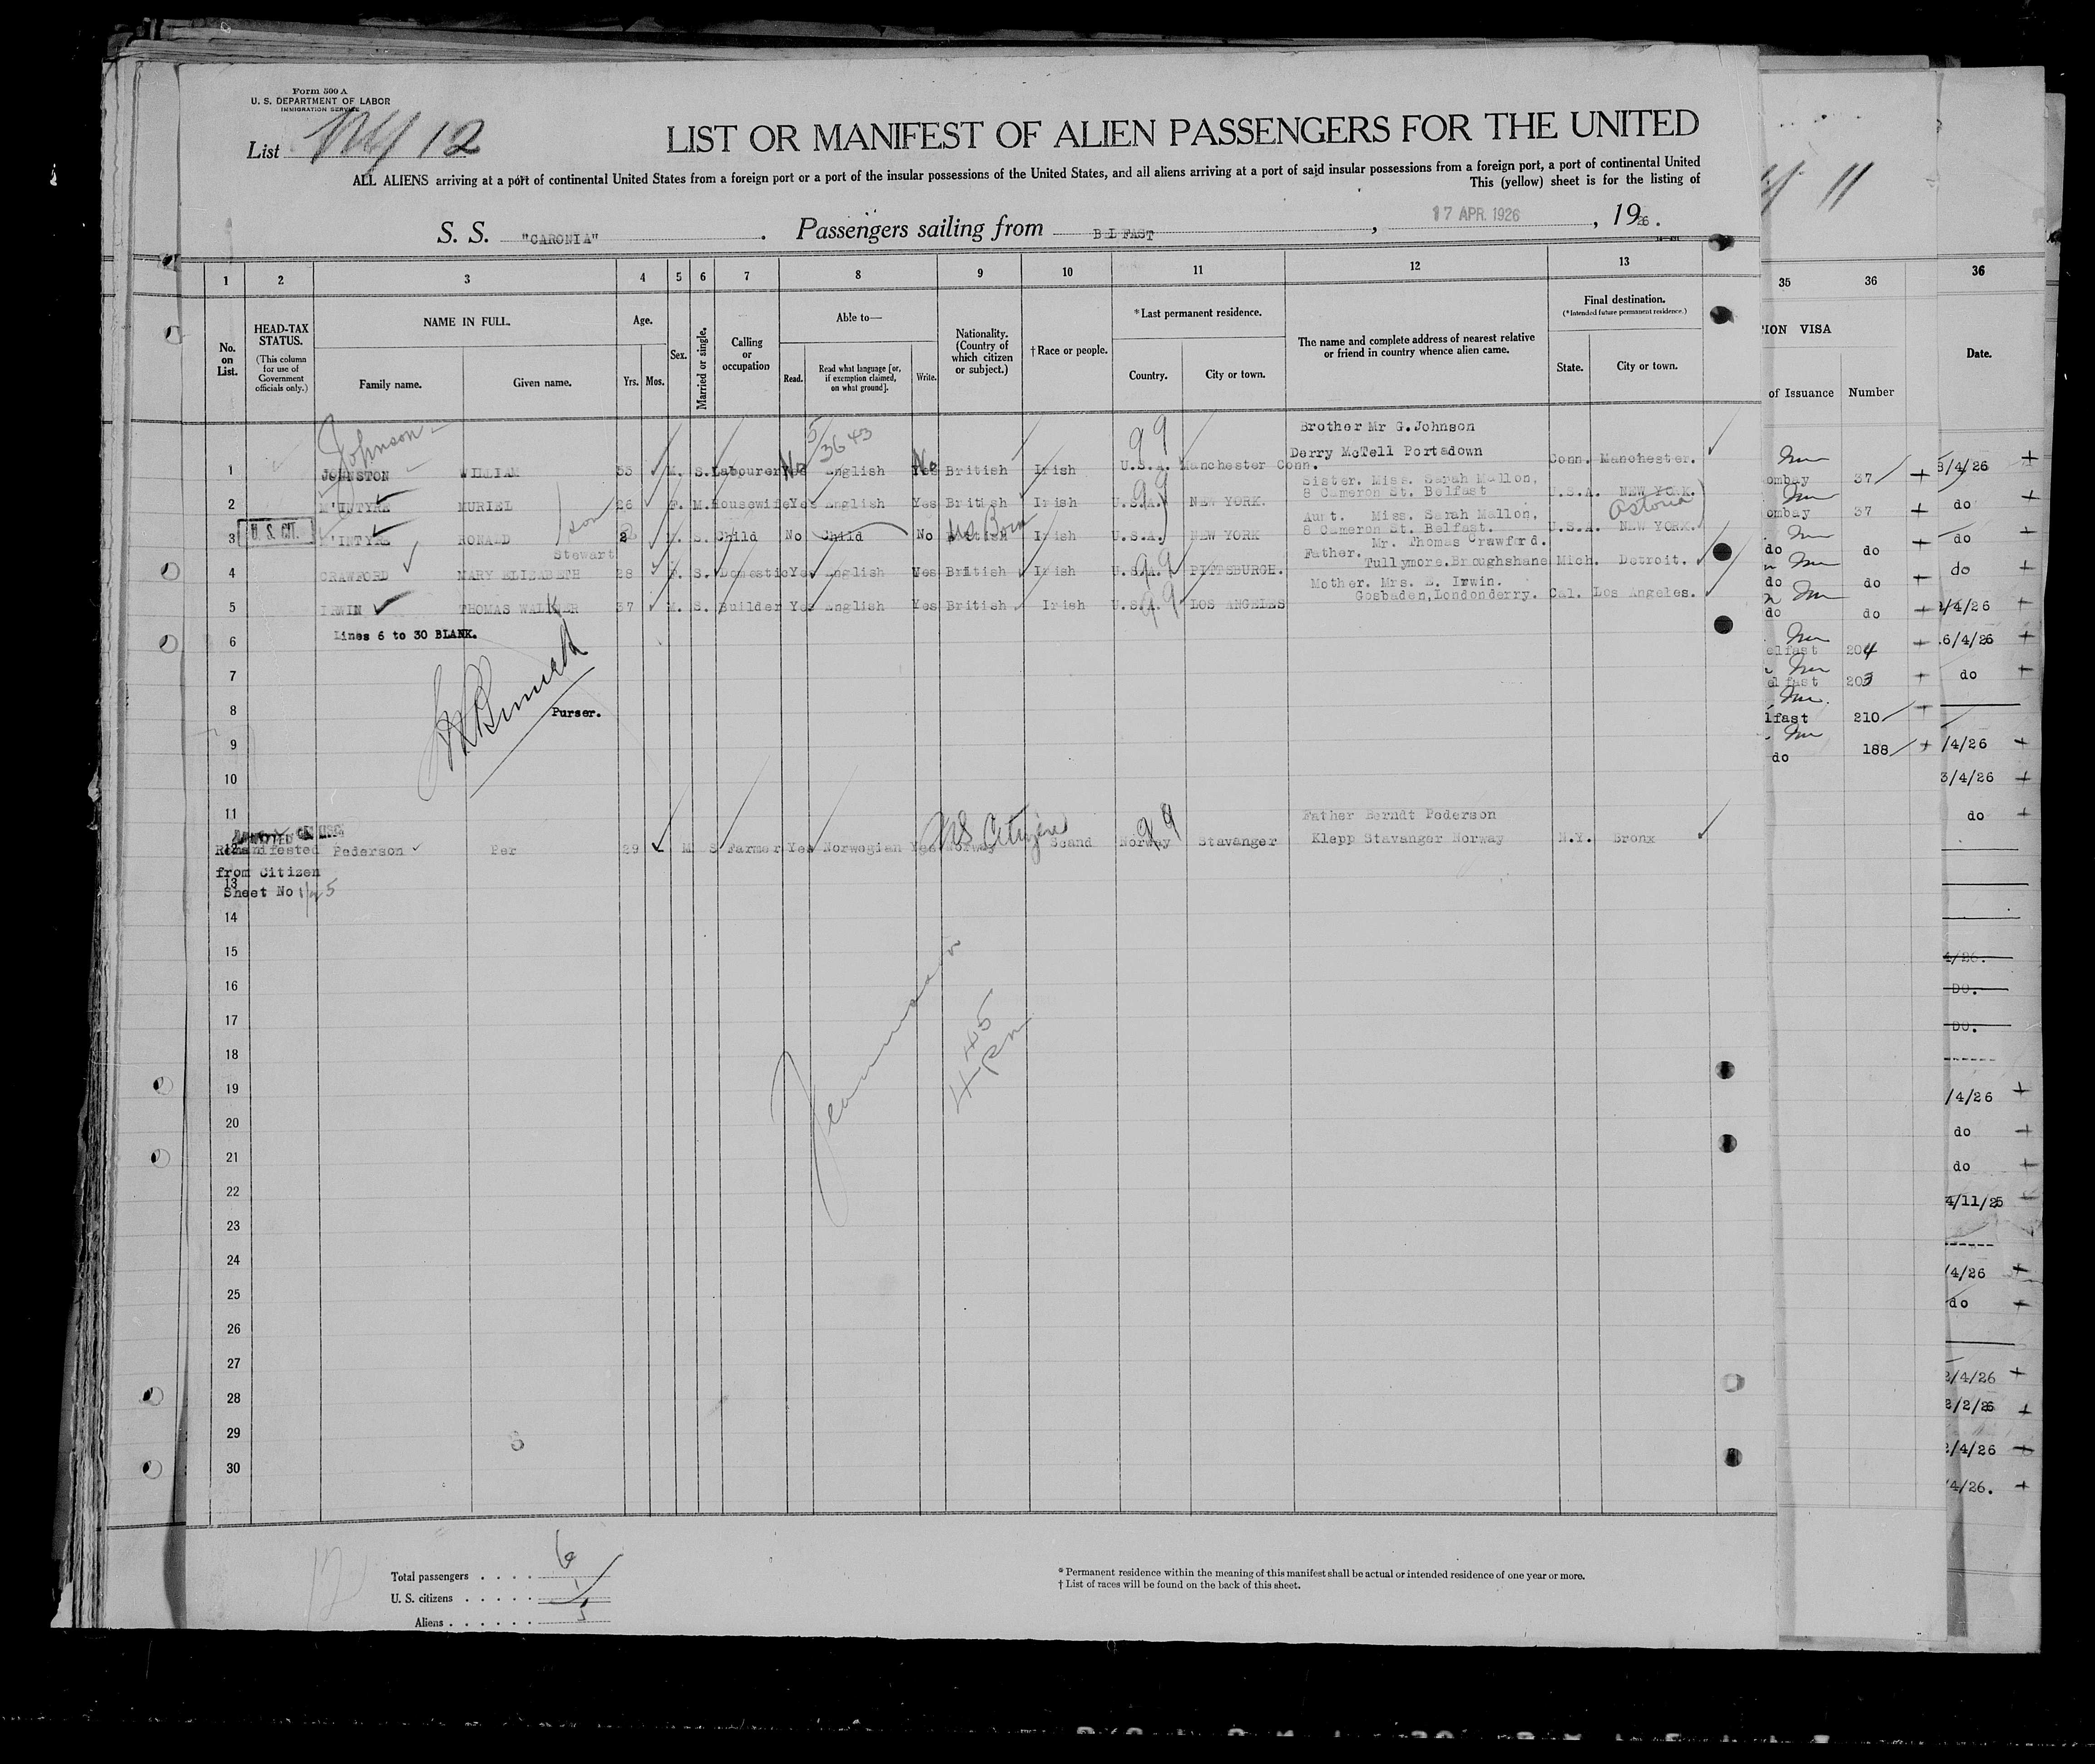 Form 500 A
U. S. DEPARTMENT OF LABOR
IMMIGRATION SERVICE
List NY 12
LIST OR MANIFEST OF ALIEN PASSENGERS FOR THE UNITED
ALL ALIENS arriving at a port of continental United States from a foreign port or a port of the insular possessions of the United States, and all aliens arriving at a port of said insular possessions from a foreign port, a port of continental United
This (yellow) sheet is for the listing of
S. S. "CARONIA" . Passengers sailing from BELFAST , 17 APR. 1926 , 1926.
1 2 3 4 5 6 7 8 9 10 11 12 13
No. on List.
HEAD-TAX STATUS.
(This column for use of Government officials only.)
NAME IN FULL.
Family name. Given name.
Age.
Yrs. Mos.
Sex.
Married or single.
Calling or occupation
Able to—
Read. Read what language [or, if exemption claimed, on what ground]. Write.
Nationality. (Country of which citizen or subject.)
† Race or people.
* Last permanent residence.
Country. City or town.
The name and complete address of nearest relative or friend in country whence alien came.
Final destination.
(* Intended future permanent residence.)
State. City or town.
Johnson 5/3643 99 Brother Mr G. Johnson
Derry McTell Portadown
1 JOHNSTON WILLIAM 35 M. S. Labourer Yes No English Yes No British Irish U.S.A. Manchester Conn. Conn. Manchester.
Sister. Miss. Sarah Mallon,
8 Cameron St. Belfast
2 M'INTYRE MURIEL 26 F. M. Housewife Yes English Yes British Irish U.S.A. 99 NEW YORK. U.S.A. NEW YORK.
Astoria
Aunt. Miss. Sarah Mallon,
8 Cameron St. Belfast.
3 U. S. CIT. M'INTYRE RONALD son 2 M. S. Child No Child No British US Born Irish U.S.A. NEW YORK U.S.A. NEW YORK.
Stewart
Father. Mr. Thomas Crawford.
Tullymore.Broughshane
4 CRAWFORD MARY ELIZABETH 28 F. S. Domestic Yes English Yes British Irish U.S.A. 99 PITTSBURGH. Mich. Detroit.
Mother. Mrs. E. Irwin.
Gosbaden,Londonderry.
5 IRWIN THOMAS WALKER 37 M. S. Builder Yes English Yes British Irish U.S.A. 99 LOS ANGELES Cal. Los Angeles.
6 Lines 6 to 30 BLANK.
7
8 Purser.
9
10
11 Father Berndt Pederson
12 Remanifested Pederson Per 29 M S Farmer Yes Norwegian Yes Norway US Citizen Scand Norway 99 Stavanger Klepp Stavanger Norway N.Y. Bronx
from Citizen
13 Sheet No 5
14
15
16
17
18
19
20
21
22
23
24
25
26
27
28
29
30
445
Pm
Total passengers . . . . 6
U. S. citizens . . . . . 1
Aliens . . . . . . 5
12
* Permanent residence within the meaning of this manifest shall be actual or intended residence of one year or more.
† List of races will be found on the back of this sheet.
11
35 36
ION VISA
of Issuance Number
ombay 37
ombay 37
do do
do do
do do
elfast 204
elfast 203
lfast 210
do 188
36
Date.
3/4/26
do
do
do
/4/26
6/4/26
do
/4/26
3/4/26
do
4/26.
DO.
DO.
/4/26
do
do
4/11/25
/4/26
do
2/4/26
2/2/26
2/4/26
/4/26.